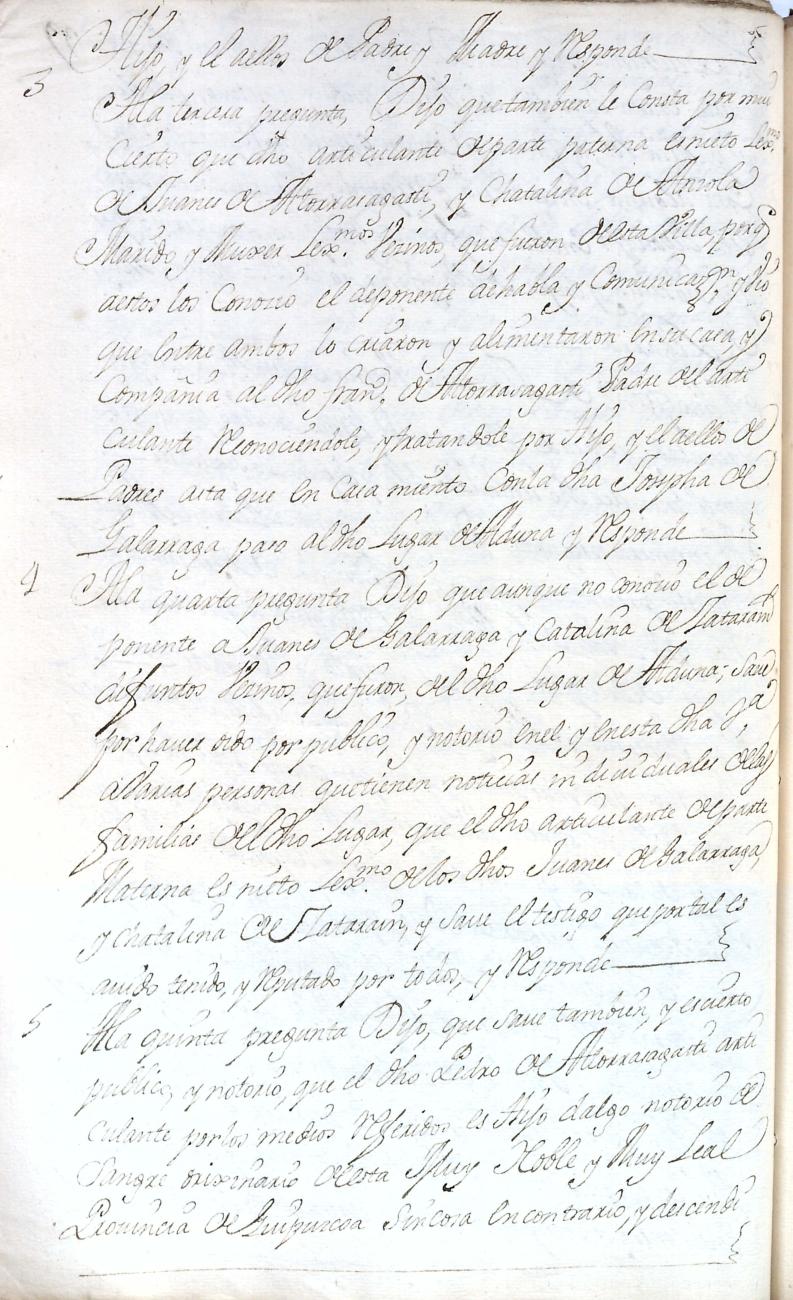 Hijo, y el aellos de Padre y Madre y Responde
3 Ala tercera pregunta, Dijo que tambien le Consta por mui
Cierto que dho articulante de parte paterna es nieto Lexmo
de Juanes de Altorrasagasti, y Chatalina de Arizola
Marido, y Muxer Lexmos Vezinos, que fueron de esta Villa, porq
aestos los Conocio el deponente de habla y Comunicazon, y vio
que entre ambos lo criaron y alimentaron en su casa, y
Compañia al dho franco de Altorrasagasti Padre del arti
culante Reconociendole, y tratandole por Hijo, y el aellos de
Padres asta que en Casamiento Con la dha Josepha de
Galarraga paso al dho Lugar de Alduna y Responde
4 Ala quarta pregunta Dijo que aunque no conocio el de
ponente a Juanes de Galarraga y Catalina de Zatarain
difuntos Vezinos, que fueron, del dho Lugar de Alduna; save
por haver oido por publico, y notorio en el y en esta dha Va
a Varias personas que tienen noticias individuales de las
familias del dho Lugar, que el dho articulante de parte
Materna es nieto Lexmo de los dhos Juanes de Galarraga,
y Chatalina de Zatarain, y save el testigo que por tal es
avido tenido, y Reputado por todos, y Responde
5 Ala quinta pregunta Dijo, que save tambien, y es cierto
publico, y notorio, que el dho Pedro de Altorrasagasti arti
culante por los medios Referidos es Hijo dalgo notorio de
Sangre orixinario de esta Muy Noble y Muy Leal
Provincia de Guipuzcoa Sin cosa en contrario, y descendi